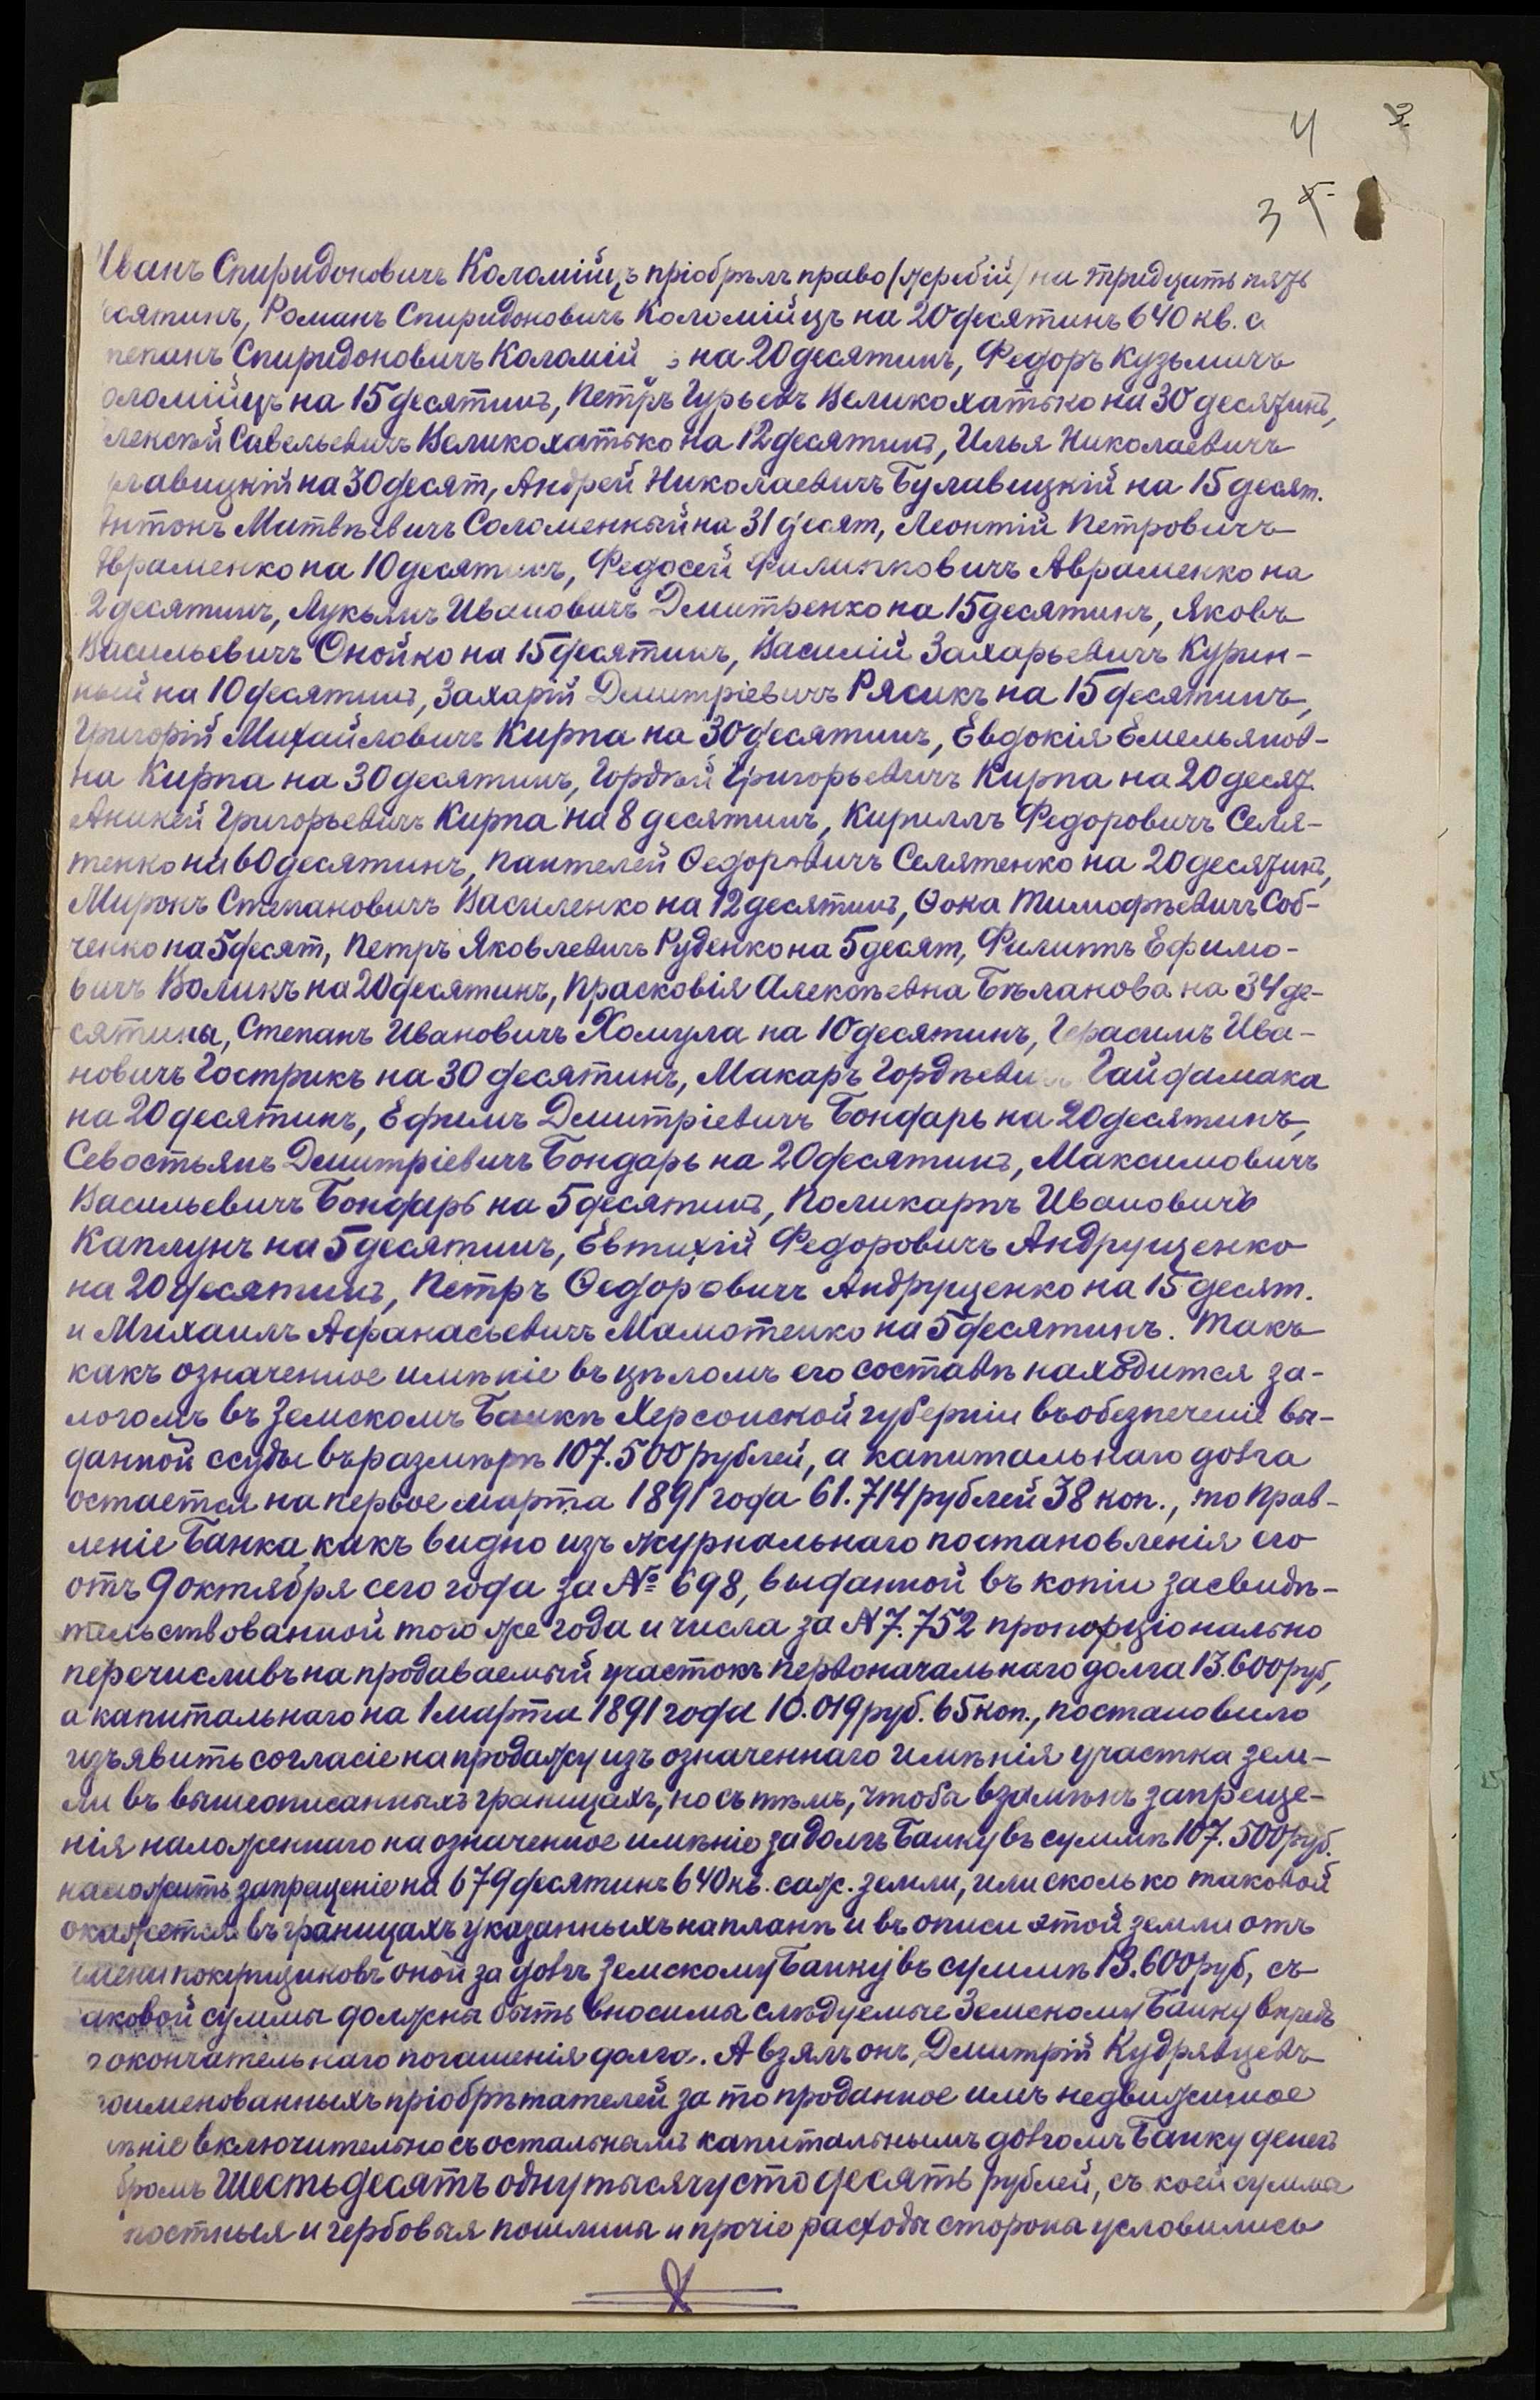 4 3
3 5
Иванъ Спиридоновичъ Коломійцъ пріобрѣлъ право (жребій) на тридцать пять
есятинъ, Романъ Спиридоновичъ Коломійцъ на 20 десятинъ 640 кв. с
тепанъ Спиридоновичъ Коломій ъ на 20 десятинъ, Федоръ Кузьмичъ
оломійцъ на 15 десятинъ, Петръ Гурьевъ Великохатько на 30 десятинъ,
лексѣй Савельевичъ Великохатько на 12 десятинъ, Илья Николаевичъ
улавицкій на 30 десят, Андрей Николаевичъ Булавицкій на 15 десят.
Антонъ Матвѣевичъ Соломенный на 31 десят, Леонтій Петровичъ
Авраменко на 10 десятинъ, Федосей Филипповичъ Авраменко на
2 десятинъ, Лукьянъ Ивановичъ Дмитренко на 15 десятинъ, Яковъ
Васильевичъ Онойко на 15 десятинъ, Василій Захарьевичъ Курин-
ный на 10 десятинъ, Захарій Дмитріевичъ Рясикъ на 15 десятинъ,
Григорій Михайловичъ Кирпа на 30 десятинъ, Евдокія Емельянов-
на Кирпа на 30 десятинъ, Гордѣй Григорьевичъ Кирпа на 20 десят.
Аникей Григорьевичъ Кирпа на 8 десятинъ, Кириллъ Федоровичъ Селя-
тенко на 60 десятинъ, Пантелей Ѳедоровичъ Селятенко на 20 десятинъ,
Миронъ Степановичъ Василенко на 12 десятинъ, Ѳома Тимофѣевичъ Соб-
ченко на 5 десят, Петръ Яковлевичъ Руденко на 5 десят, Филиппъ Ефимо-
вичъ Воликъ на 20 десятинъ, Прасковія Алексѣевна Бѣланова на 34 де-
сятины, Степанъ Ивановичъ Хомула на 10 десятинъ, Герасимъ Ива-
новичъ Гострикъ на 30 десятинъ, Макаръ Гордѣеви Гайдамака
на 20 десятинъ, Ефимъ Дмитріевичъ Бондарь на 20 десятинъ,
Севостьянъ Дмитріевичъ Бондарь на 20 десятинъ, Максимовичъ
Васильевичъ Бондарь на 5 десятинъ, Поликарпъ Ивановичъ
Каплунъ на 5 десятинъ, Евтихій Федоровичъ Андрущенко
на 20 десятинъ, Петръ Ѳедоровичъ Андрущенко на 15 десят.
и Михаилъ Афанасьевичъ Мамотенко на 5 десятинъ. Такъ
какъ означенное имѣніе въ цѣломъ его составѣ находится за-
логомъ въ Земскомъ Банкѣ Херсонской губерніи въ обезпеченіе вы-
данной ссуды въ размѣрѣ 107.500 рублей, а капитальнаго долга
остается на первое марта 1891 года 61.714 рублей 38 коп., то Прав-
леніе Банка, какъ видно изъ журнальнаго постановленія его
отъ 9 октября сего года за № 698, выданной въ копіи засвидѣ-
тельствованной того же года и числа за N 7.752 пропорціонально
перечисливъ на продаваемый участокъ первоначальнаго долга 13.600 руб,
а капитальнаго на 1 марта 1891 года 10.019 руб. 65 коп., постановило
изъявить согласіе на продажу изъ означеннаго имѣнія участка зем-
ли въ вышеописанныхъ границахъ, но съ тѣмъ, чтобы взамѣнъ запреще-
нія наложеннаго на означенное имѣніе за долгъ Банку въ суммѣ 107.500 руб.
наложить запрещеніе на 679 десятинъ 640 кв. саж. земли, или сколько таковой
окажется въ границахъ указанныхъ на планѣ и въ описи этой земли отъ
имени покупщиковъ оной за долгъ Земскому Банку въ суммѣ 13.600 руб, съ
аковой суммы должны быть вносимы слѣдуемые Земскому Банку впредь
о окончательнаго погашенія долга. А взялъ онъ, Дмитрій Кудрявцевъ
оименованныхъ пріобрѣтателей за то проданное имъ недвижимое
ѣніе включительно съ остальнымъ капитальнымъ долгомъ Банку денегъ
бромъ шестьдесятъ одну тысячу сто десять рублей, съ коей суммы
постныя и гербовыя пошлины и прочіе расходы стороны условились